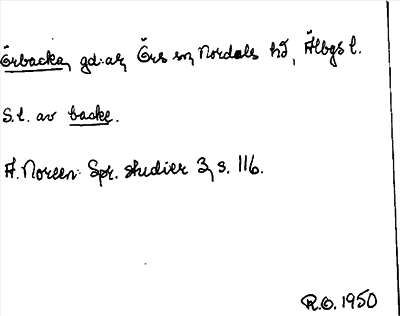 Örbacka, gd. ar, Örs sn, Nordals hd, Älbgs l.
S.l. av backe.
A. Noreen Spr. studier 3, s. 116.
R.O. 1950